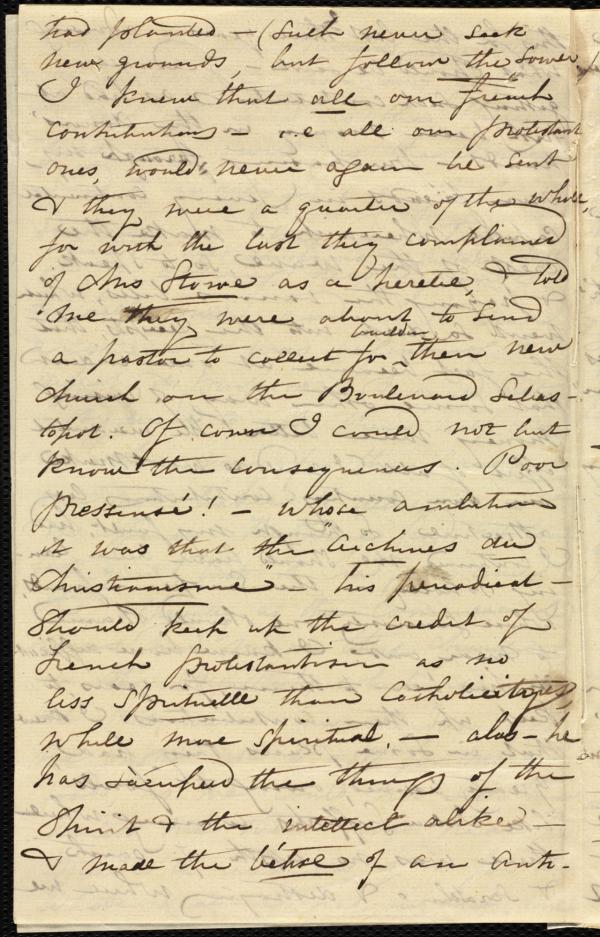 had planted — (such never seek
new grounds, but follow the sower
I knew that all our "french"
contributions — i.e all our protestant
ones, would never again be sent
& they were a quarter of the whole,
for with the last they complained
of Mrs Stowe as a heretic, & told
me they were about to send
a pastor to collect for building their new
church on the Boulevard Sebas-
topol. Of course I could not but
know the consequences. Poor
Pressensé! — whose ambition
it was that the "Archives du
Christianisme" — his periodical —
should keep up the credit of
French protestantism as no
less spirituelle than Catholicism,
while more spiritual, — alas — he
has sacrificed the things of the
Spirit & the intellect alike —
& made the bêtise of an anti-